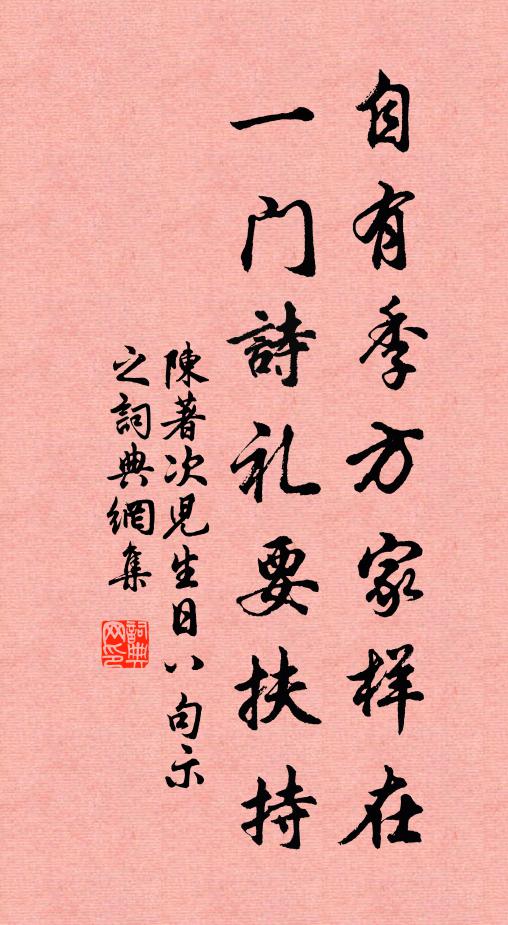 自有季方家样在
一门詩礼要扶持
陳著次兒生日八句示
之詞典網集
詞典网印